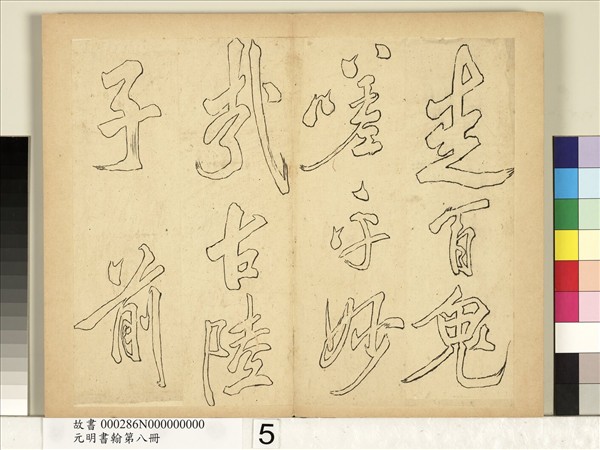 走百鬼
嗟乎妙
哉古陸
子前
故書 000286N000000000
元明書翰第八冊
5